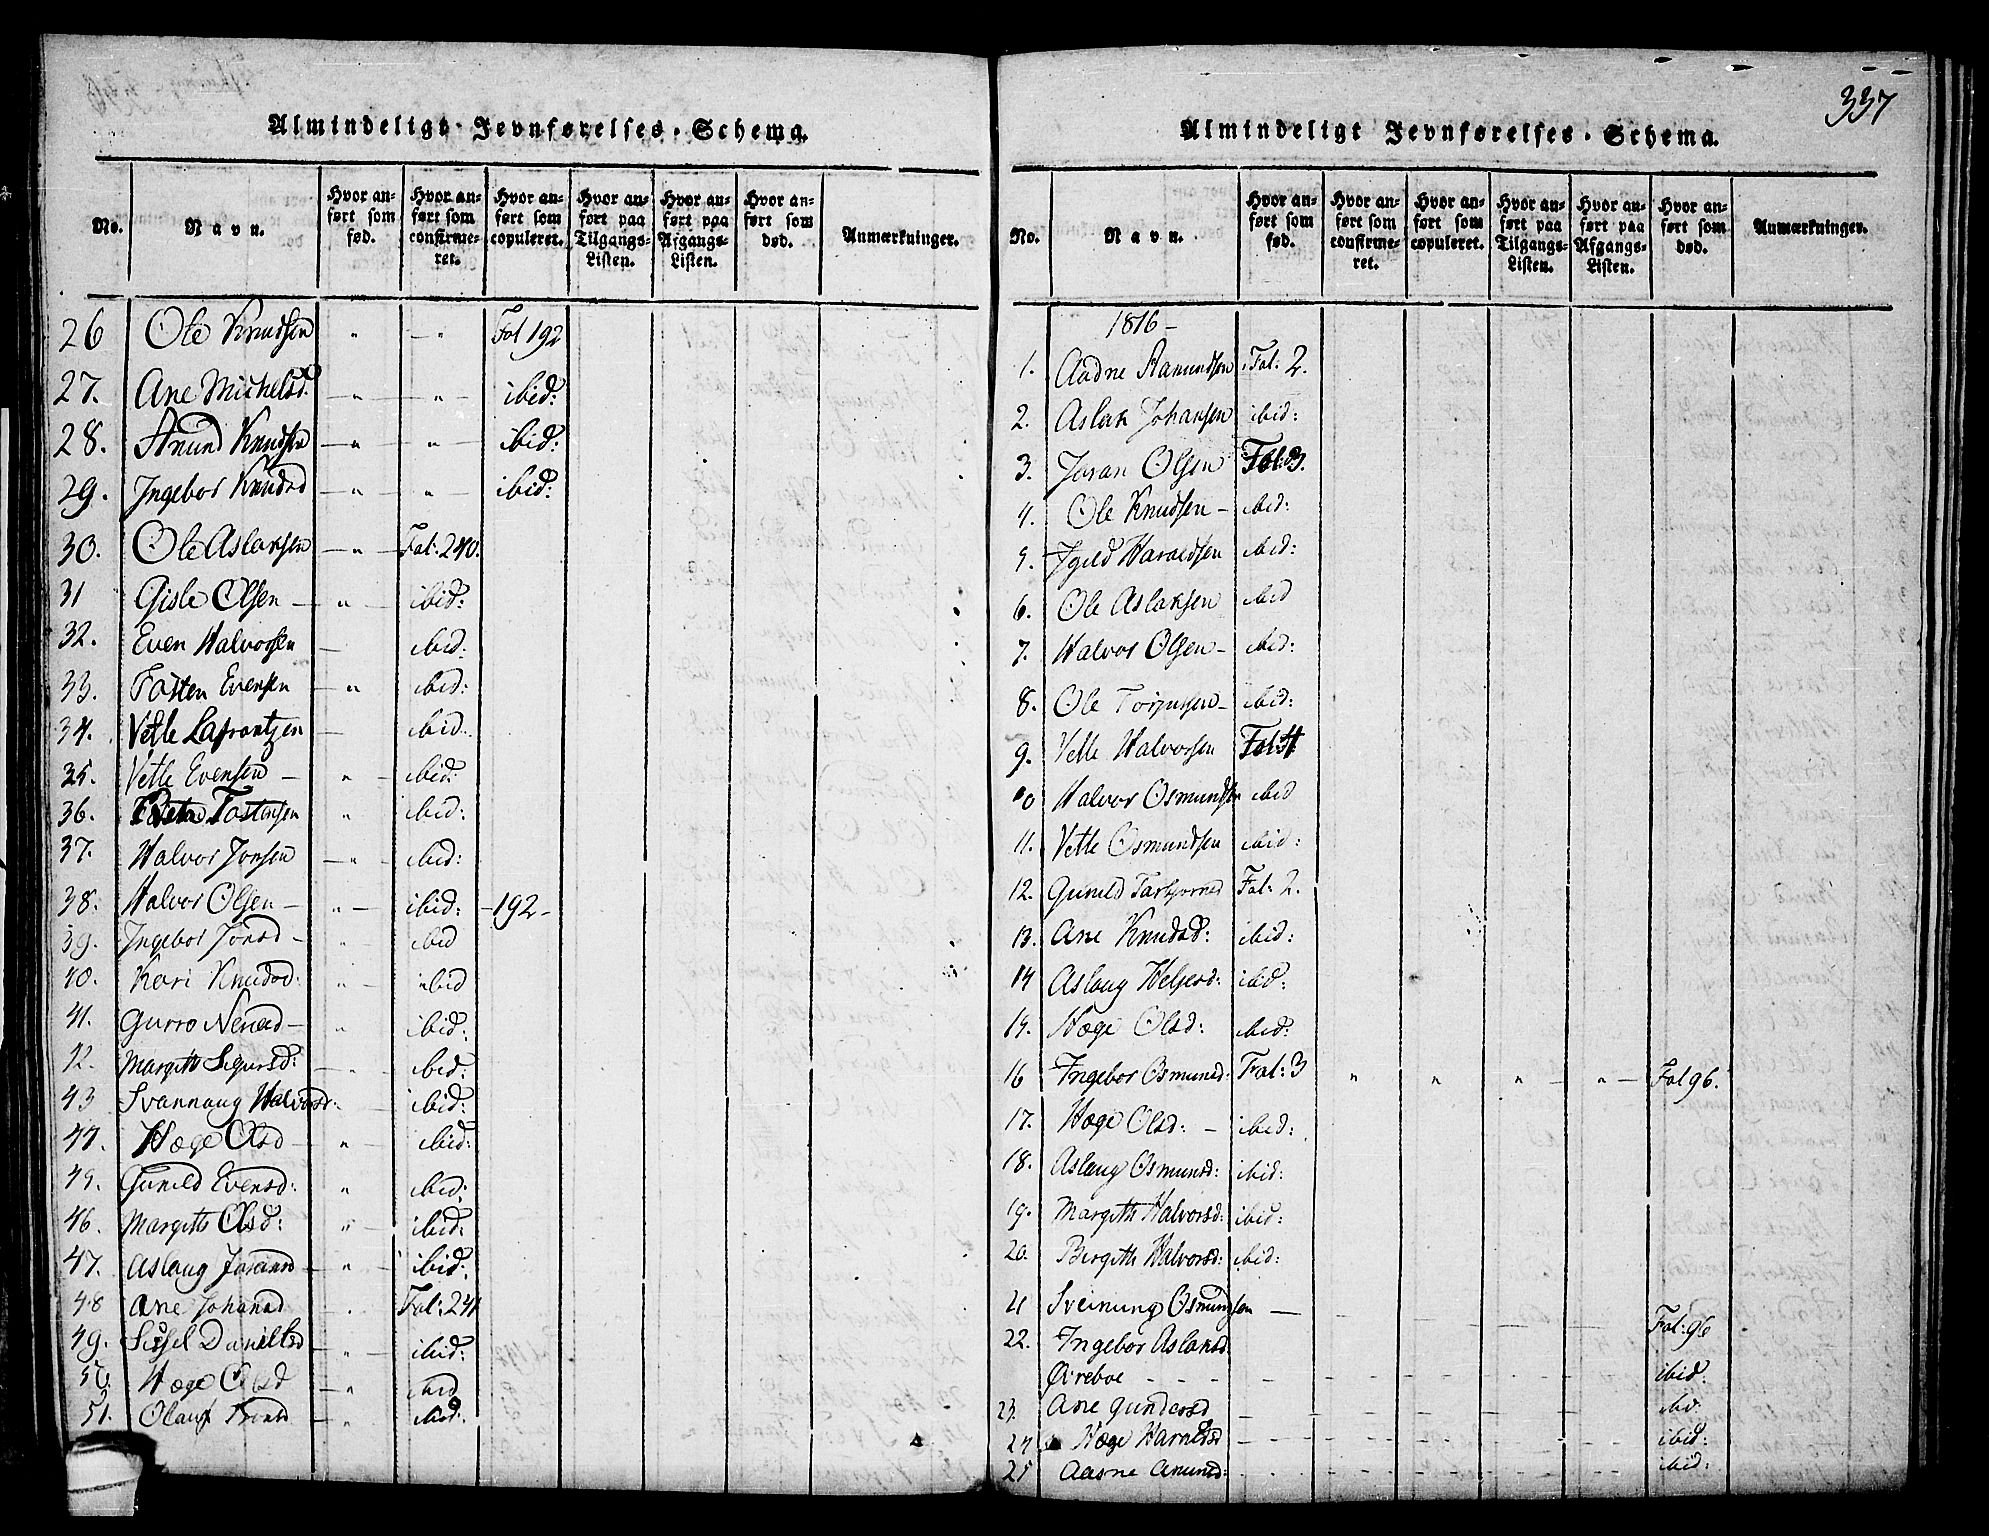 Almindeligt Jevnførelses-Schema.
No. Navn. Hvor anført som fød. Hvor anført som confirmeret. Hvor anført som copuleret. Hvor anført paa Tilgangs-Listen. Hvor anført paa Afgangs-Listen. Hvor anført som død. Anmærkninger.
26 Ole Knudsen " — " Fol 192
27. Ane Michelsd. — " — " — ibid:
28. Knud Knudsen — " — " — ibid:
29. Ingebor Knudsd — " — " — ibid:
30. Ole Aslaksen — " — Fol: 240.
31 Gisle Olsen — " — ibid:
32. Even Halvorsen — ibid:
33. Tosten Evensen — " — ibid:
34. Vetle Lafrantzen — ibid:
35. Vetle Evensen — " — ibid:
36. Tostensen " ibid:
37. Halvor Jonsen — " — ibid:
38. Halvor Olsen — " — ibid: — 192 —
39. Ingebor Jonsd — " — ibid
40. Kari Knudsd: " — ibid
41. Gurro Nersd — " ibid:
42. Margith Sigursd: — " — ibid:
43 Svannaug Halvorsd: — ibid:
44. Hæge Olsd — " — ibid:
45. Guneld Evensd: " ibid:
46. Margith Olsd: " — ibid:
47. Aslaug Joransd — " — ibid:
48 Ane Johansd " Fol: 241
49. Sissel Danielsd — " — ibid:
50. Hæge Olsd — " — ibid
51. Olauf — " — ibid:
337
Almindeligt Jevnførelses-Schema.
No. Navn. Hvor anført som fød. Hvor anført som confirmeret. Hvor anført som copuleret. Hvor anført paa Tilgangs-Listen. Hvor anført paa Afgangs-Listen. Hvor anført som død. Anmærkninger.
1816 —
1. Aadne Aamundsen Fol: 2.
2. Aslak Johansen ibid:
3. Joran Olsen Fol: 3.
4. Ole Knudsen — ibid:
5. Haraldsen ibid:
6. Ole Aslaksen ibid
7. Halvor Olsen — ibid:
8. Ole Torjussen — ibid:
9. Vetle Halvorsen Fol: 4
10 Halvor Osmundsen ibid
11. Vetle Osmundsen ibid:
12. Guneld Tarbjørnsd Fol: 2.
13. Ane Knudsd: ibid:
14 Aslaug Helgesd: ibid:
15. Hæge Olsd: ibid:
16 Ingebor Osmunsd: Fol: 3 " " " — " — Fol 96.
17. Hæge Olsd: — ibid:
18. Aslaug Osmunsd: ibid:
19. Margith Halvorsd: ibid:
20. Bergith Halvorsd: ibid:
21 Sveinung Osmundsen — Fol: 96
22. Ingebor Aslaksd
Øvreboe — ibid:
23. Ane Gundersd — ibid.
24 Hæge Haraldsd — ibid:
25 Aasne Amunsd: — ibid: